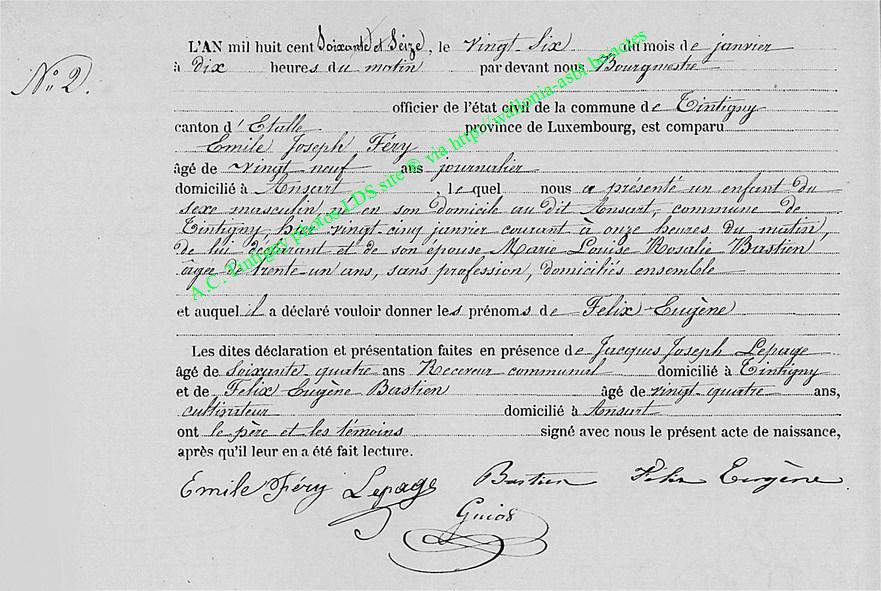 L'AN mil huit cent Soixante et Seize, le vingt-Six du mois de janvier
N° 2.
à dix heures du matin par devant nous Bourgmestre
officier de l'état civil de la commune de Tintigny
canton d'Etalle province de Luxembourg, est comparu
Emile Joseph Féry
âgé de vingt neuf ans journalier
domicilié à Ansart, lequel nous a présenté un enfant du
sexe masculin né en son domicile au dit Ansart, commune de
Tintigny, hier vingt-cinq janvier courant à onze heures du matin,
de lui déclarant et de son épouse Marie Louise Rosalie Bastien
âgée de trente-un ans, sans profession, domiciliés ensemble
et auquel il a déclaré vouloir donner les prénoms de Felix-Eugène
Les dites déclaration et présentation faites en présence de Jacques Joseph Lepage
âgé de soixante quatre ans Receveur communal domicilié à Tintigny
et de Felix Eugène Bastien âgé de vingt-quatre ans,
cultivateur domicilié à Ansart
ont le père et les témoins signé avec nous le présent acte de naissance,
après qu'il leur en a été fait lecture.
Emile Féry Lepage Bastien Felix Eugène
A.C. Tintigny photos LDS site © via http://wallonia-asbl.be/actes